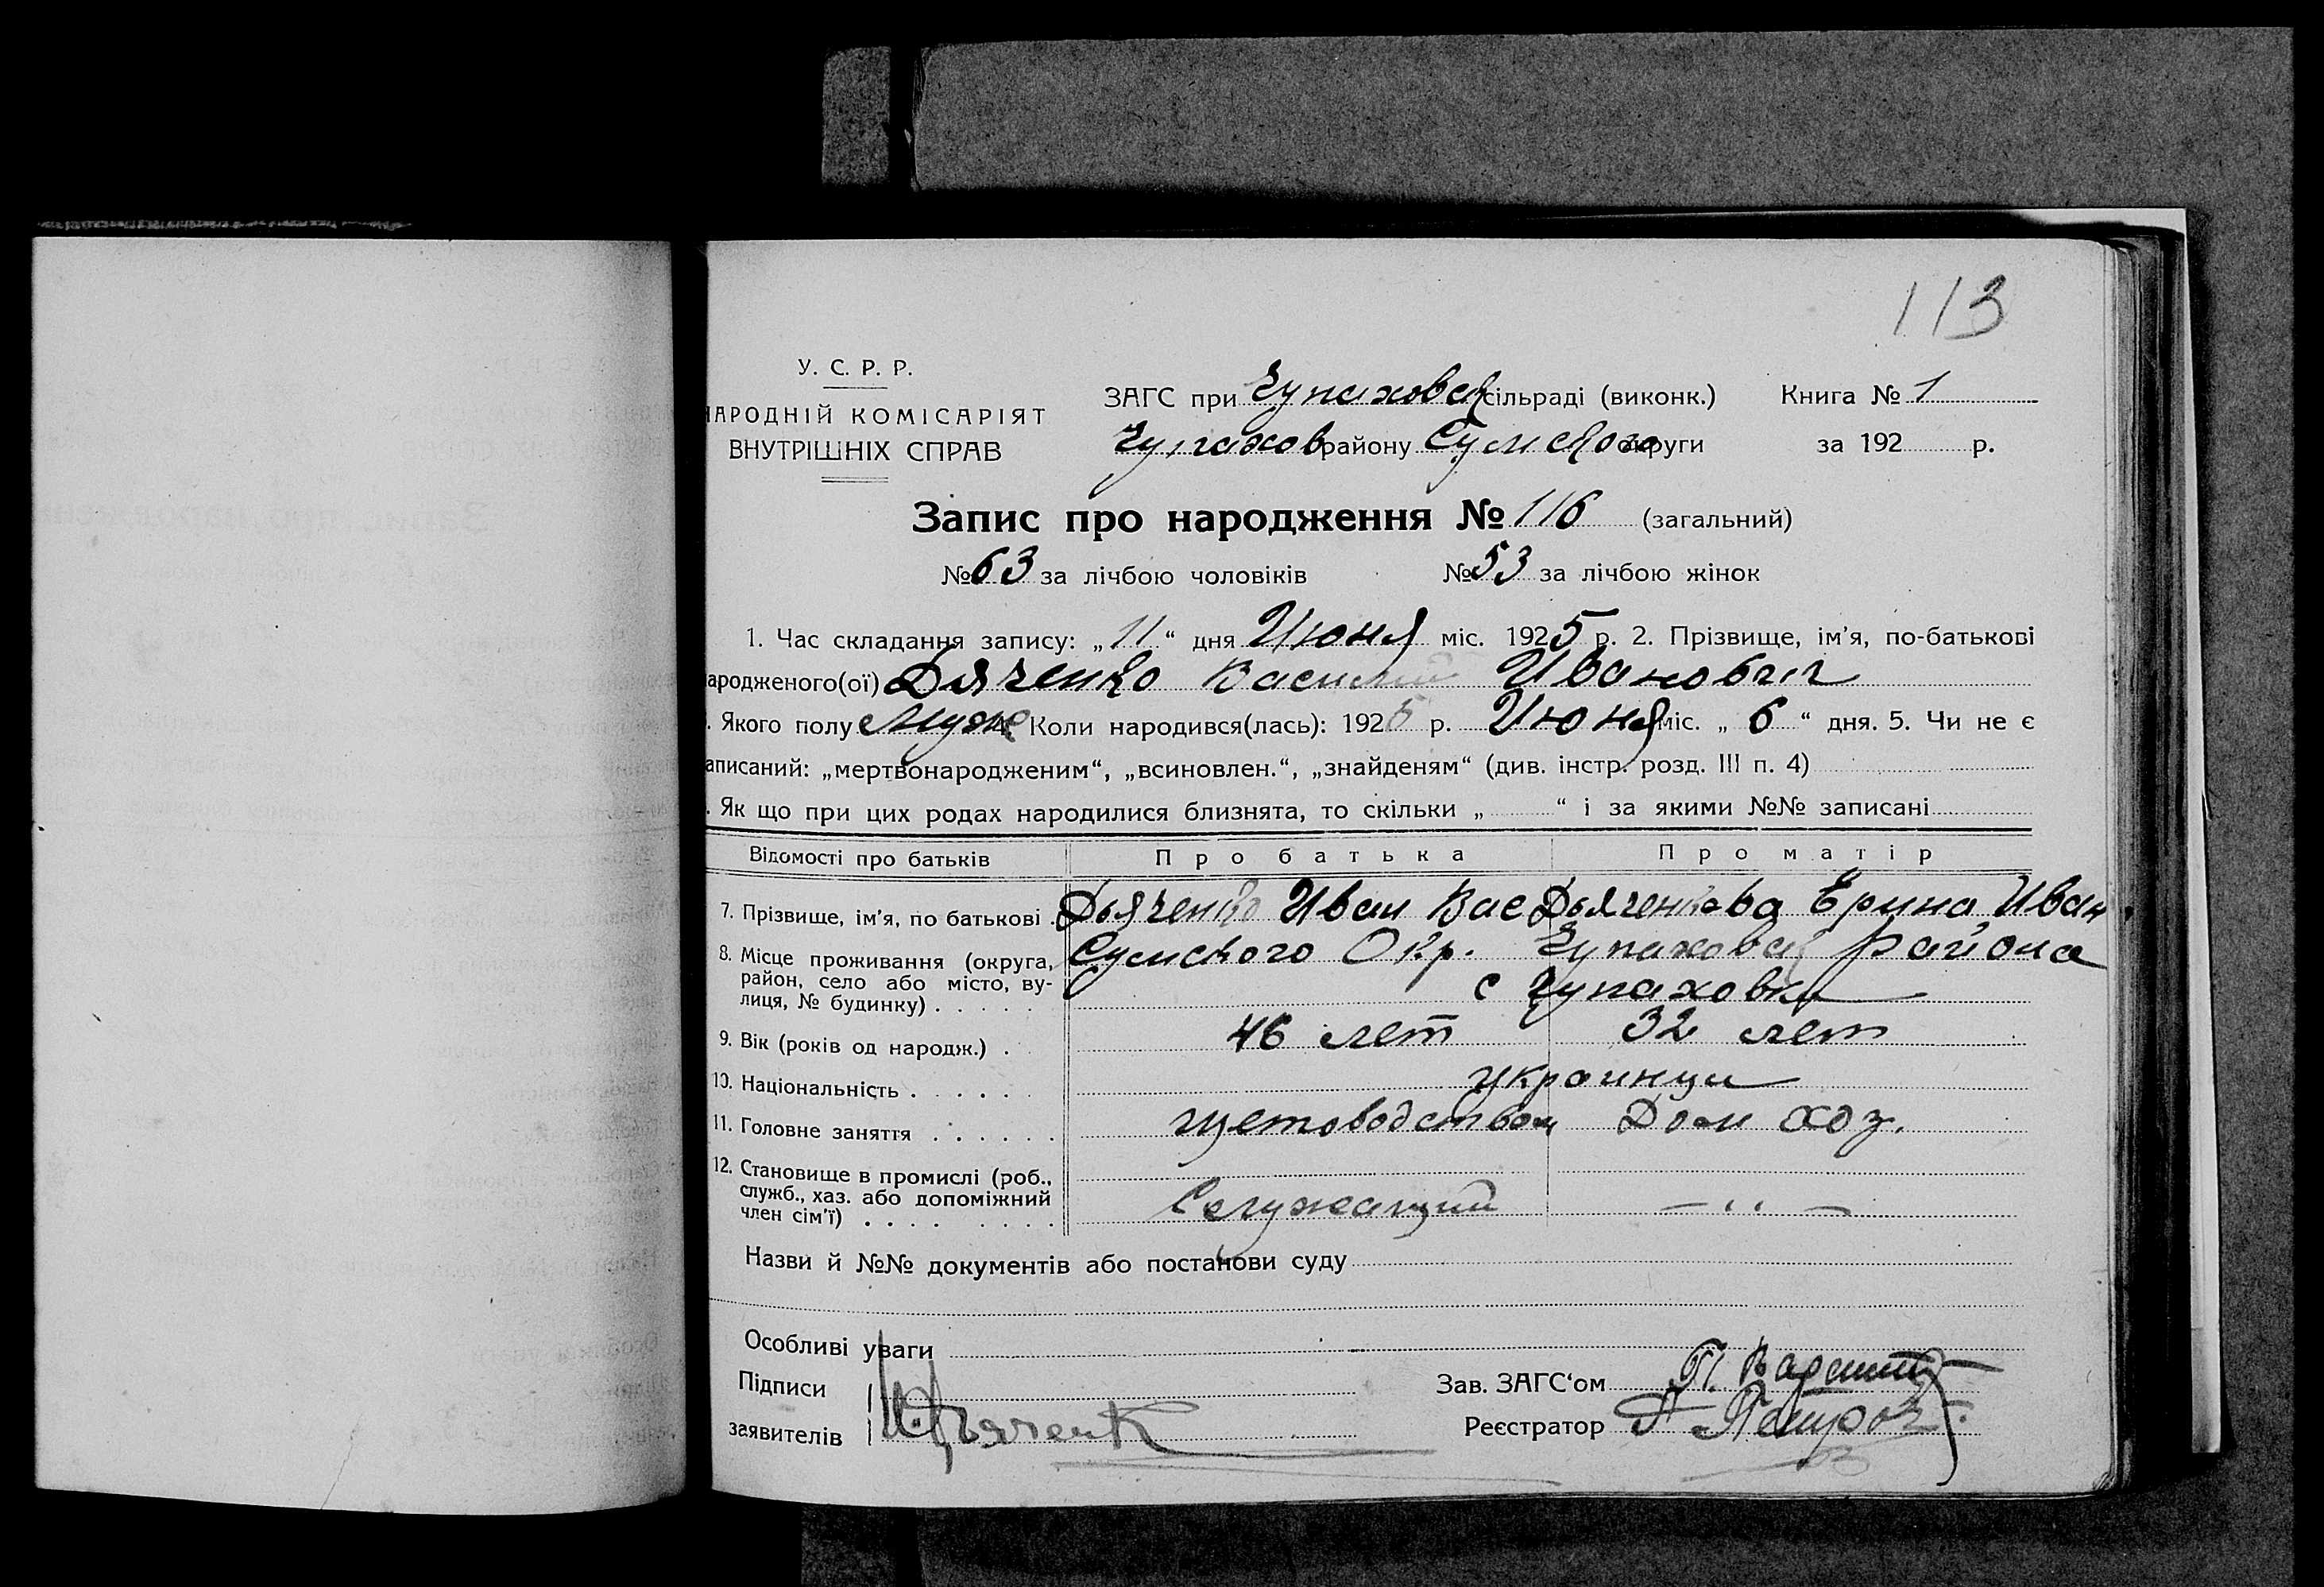 113
У. С. Р. Р.
НАРОДНІЙ КОМІСАРІЯТ
ВНУТРІШНІХ СПРАВ
ЗАГС при Чупаховск сільраді (виконк.) Книга № 1
Чупахов району Сумского округи за 192 р.
Запис про народження № 116 (загальний)
№ 63 за лічбою чоловіків № 53 за лічбою жінок
1. Час складання запису: „11“ дня Июня міс. 1925 р. 2. Прізвище, ім’я, по-батькові
ародженого(ої) Дяченко Василий Иванович
. Якого полу Муж 4. Коли народився(лась): 1925 р. Июня міс. „6“ дня. 5. Чи не є
аписаний: „мертвонародженим“, „всиновлен.“, „знайденям“ (див. інстр. розд. III п. 4)
. Як що при цих родах народилися близнята, то скільки „ “ і за якими №№ записані
Відомості про батьків Про батька Про матір
7. Прізвище, ім’я, по батькові . Дьяченко Иван Вас Дьяченкова Ерина Иван
8. Місце проживання (округа, Сумского Окр. Чупаховск района
район, село або місто, ву- с Чупаховка
лиця, № будинку) . . . . .
9. Вік (років од народж.) . 46 лет 32 лет
10. Національність . . . . . . украинци
11. Головне заняття . . . . . . щетоводством Дом хоз.
12. Становище в промислі (роб.,
служб., хаз. або допоміжний Служащий — „ —
член сім’ї) . . . . . . . .
Назви й №№ документів або постанови суду
Особливі уваги
Підписи Зав. ЗАГС‘ом П.
заявителів И. Дьяченк Реєстратор А Петров